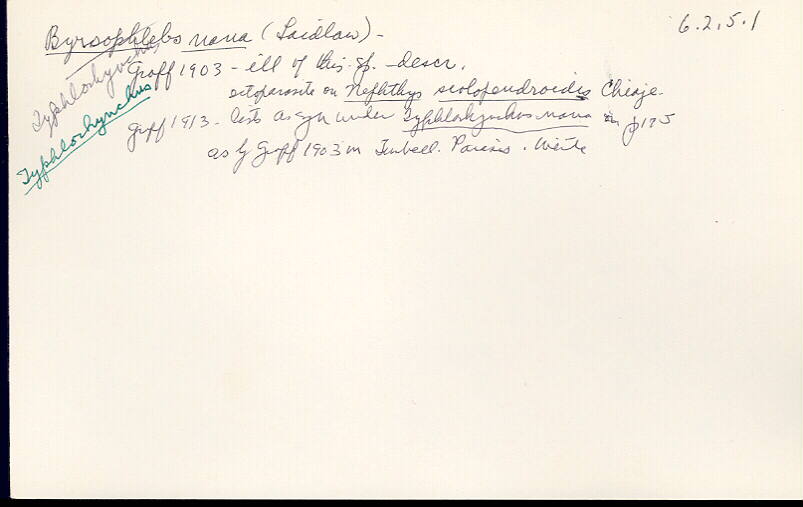 6.2.5.1
Byrsophlebs nana (Laidlaw) -
Typhlorhynchus
Typhlorhynchus
Graff 1903 - ill of this sp. - descr.
ectoparasite on Nephthys scolopendroides Chiaje.
Graff 1913 - lists as syn under Typhlorhynchus nana in p 125
as by Graff 1903 in Turbell. Parasis.